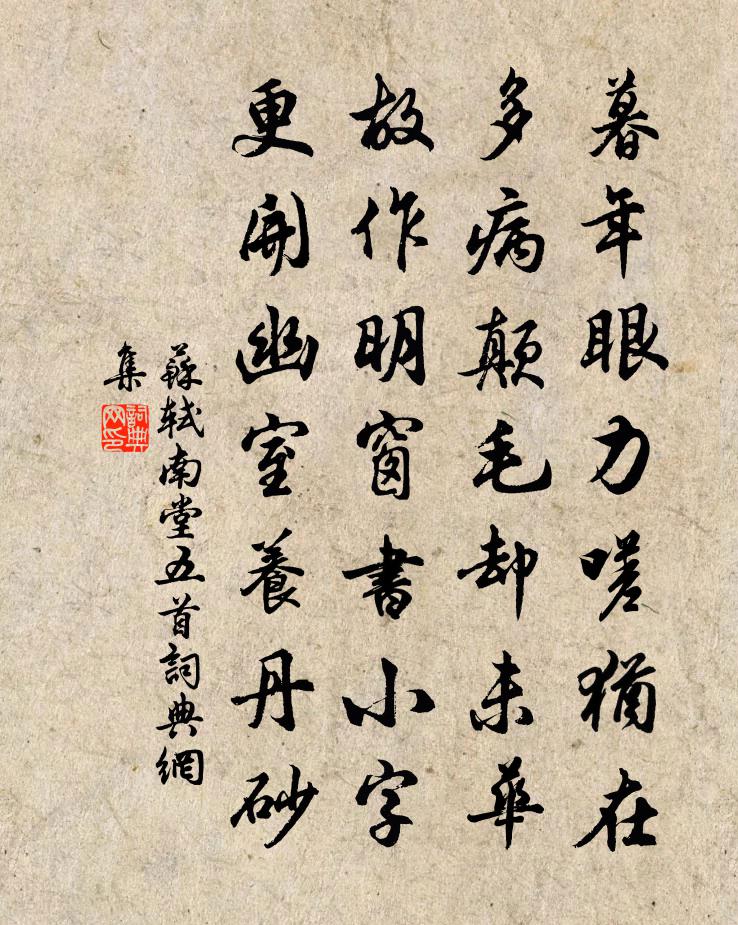 暮年眼力嗟猶在
多病顛毛却未華
故作明窗書小字
更開幽室養丹砂
蘇軾南堂五首詞典網
集
詞典
网印